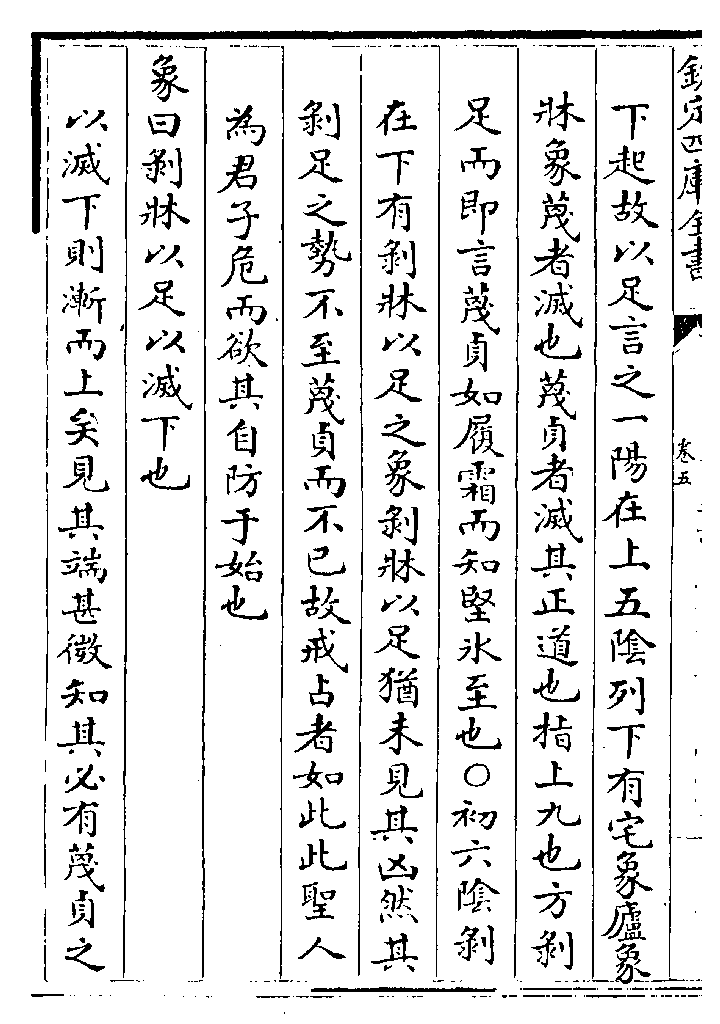 欽定四庫全書
卷五
下起故以足言之一陽在上五陰列下有宅象廬象
牀象蔑者滅也蔑貞者滅其正道也指上九也方剝
足而即言蔑貞如履霜而知堅氷至也○初六陰剝
在下有剝牀以足之象剝牀以足猶未見其凶然其
剝足之勢不至蔑貞而不已故戒占者如此此聖人
為君子危而欲其自防于始也
象曰剝牀以足以滅下也
以滅下則漸而上矣見其端甚微知其必有蔑貞之